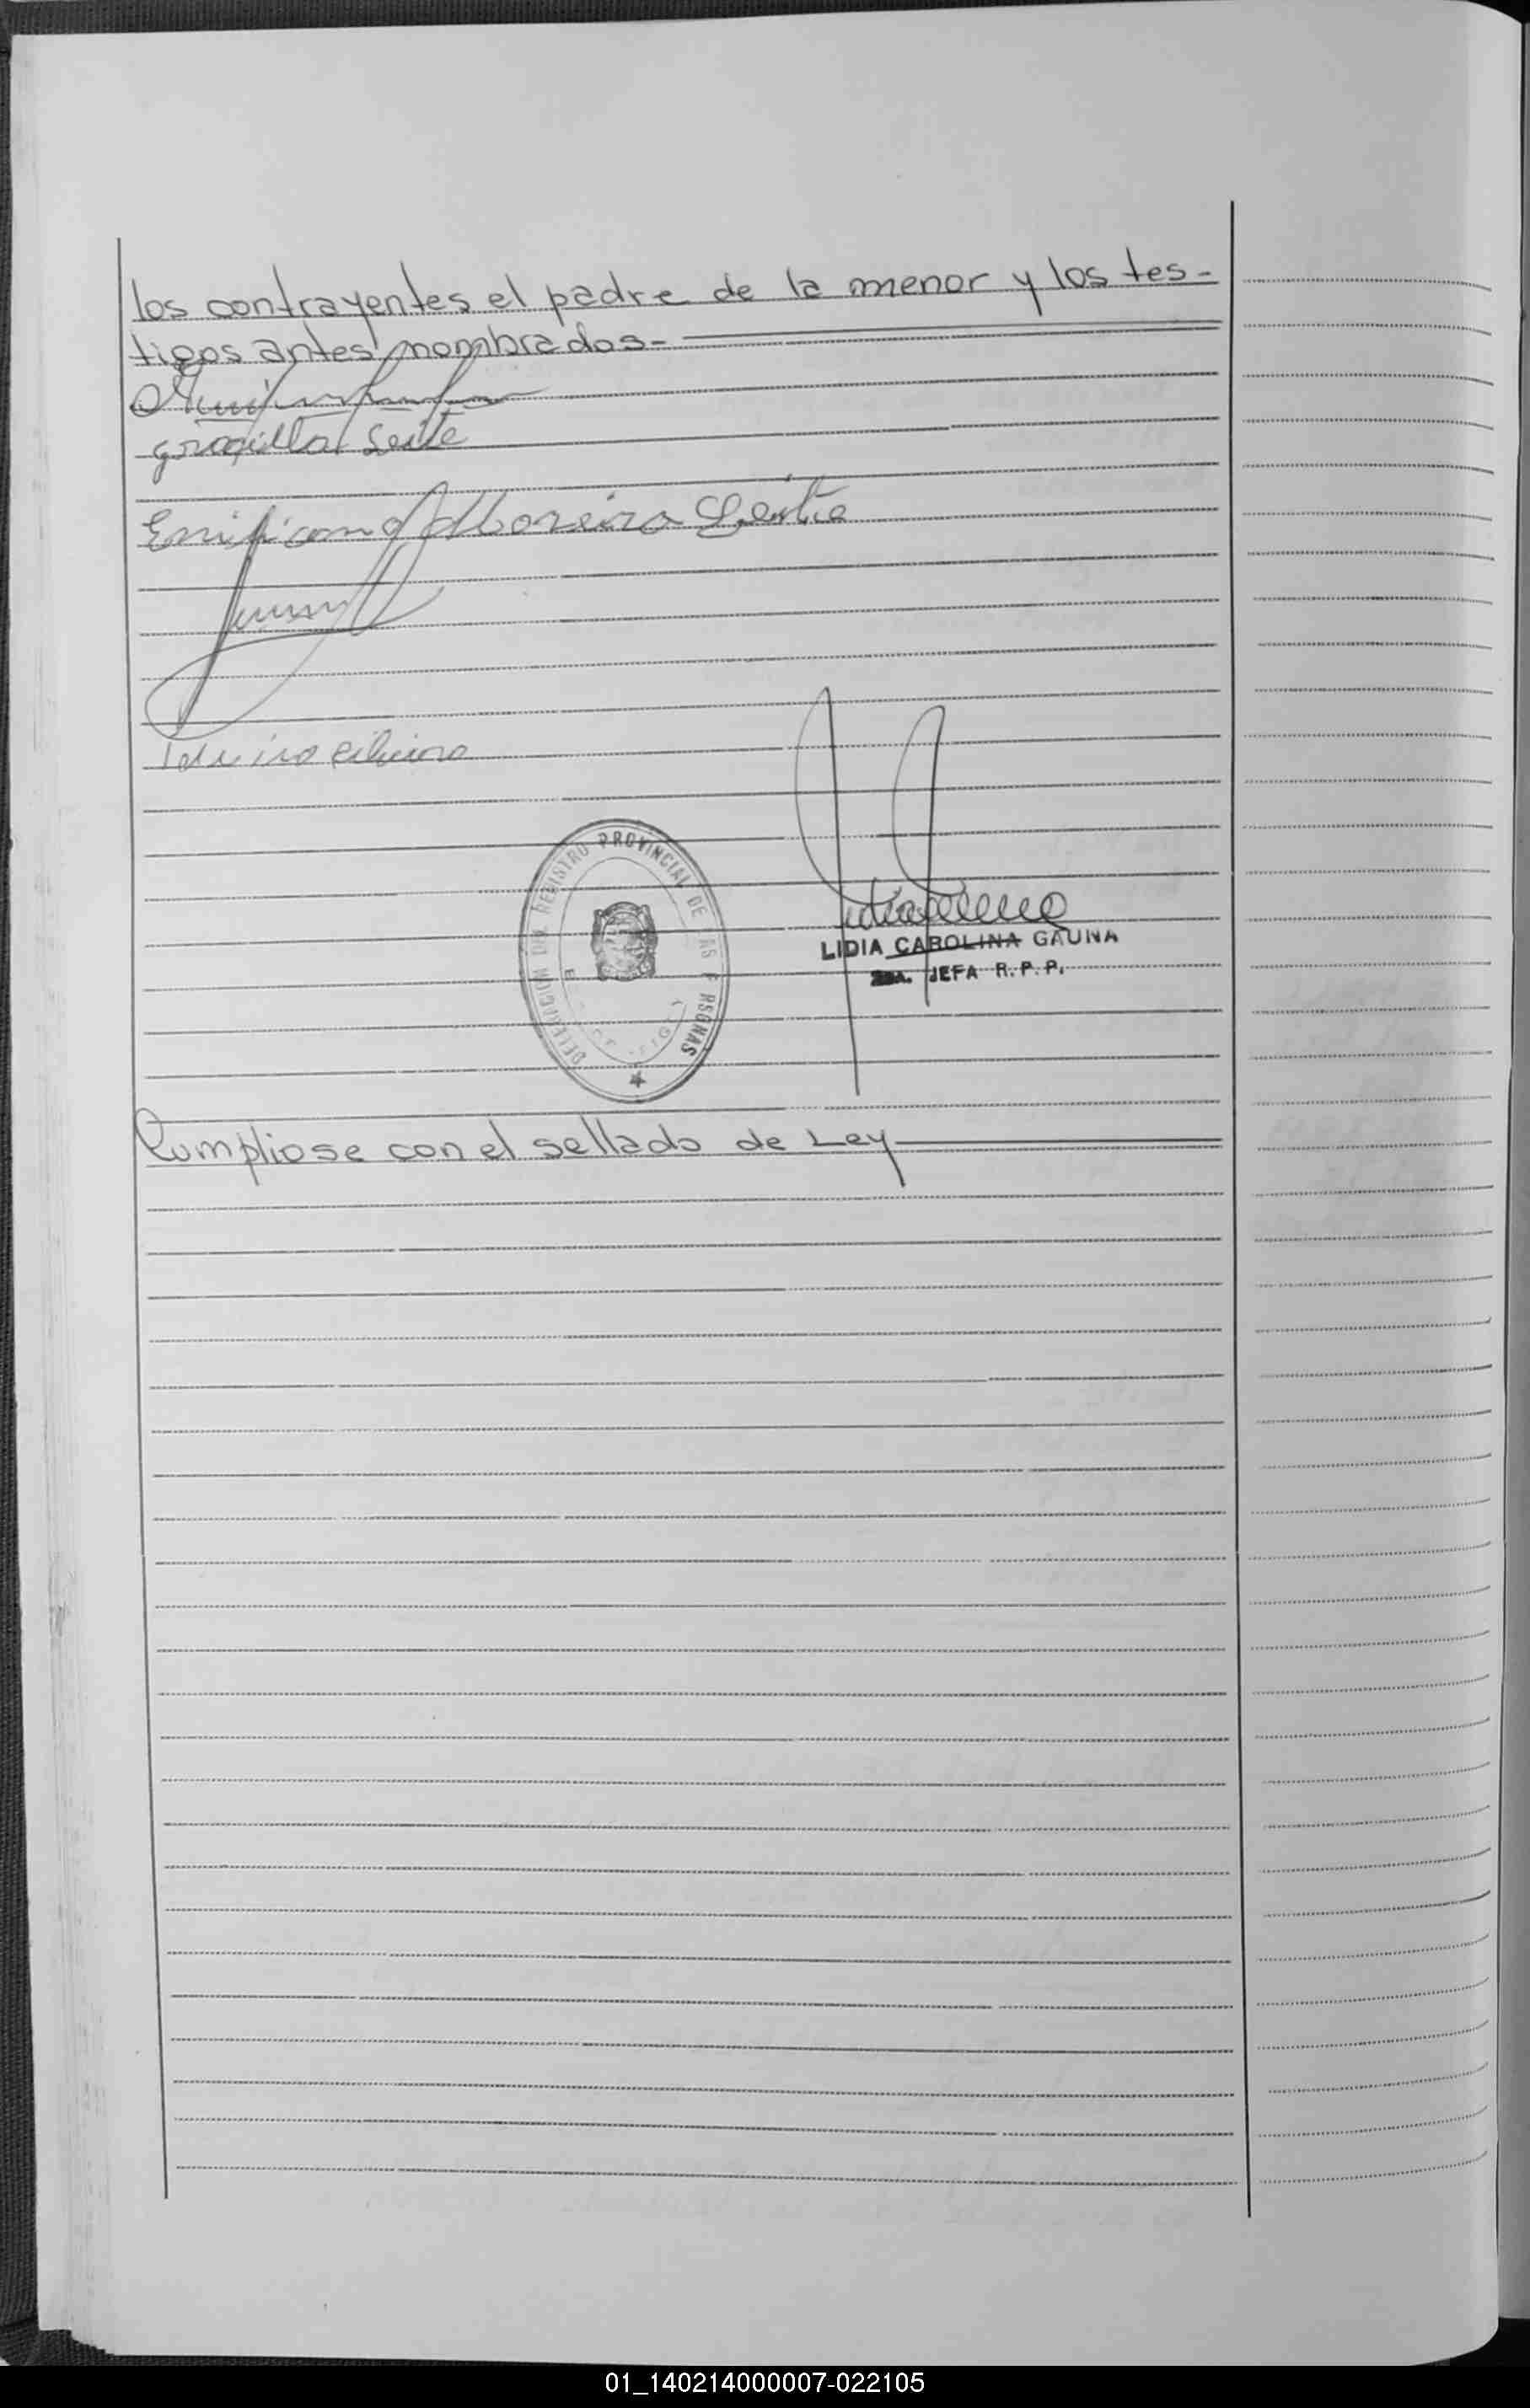 los contrayentes el padre de la menor y los tes-
tigos antes nombrados-
Leite
Moreira Leite
DELEGACION DEL REGISTRO PROVINCIAL DE LAS PERSONAS
LIDIA CAROLINA GAUNA
JEFA R.P.P.
Cumpliose con el sellado de Ley
01_140214000007-022105